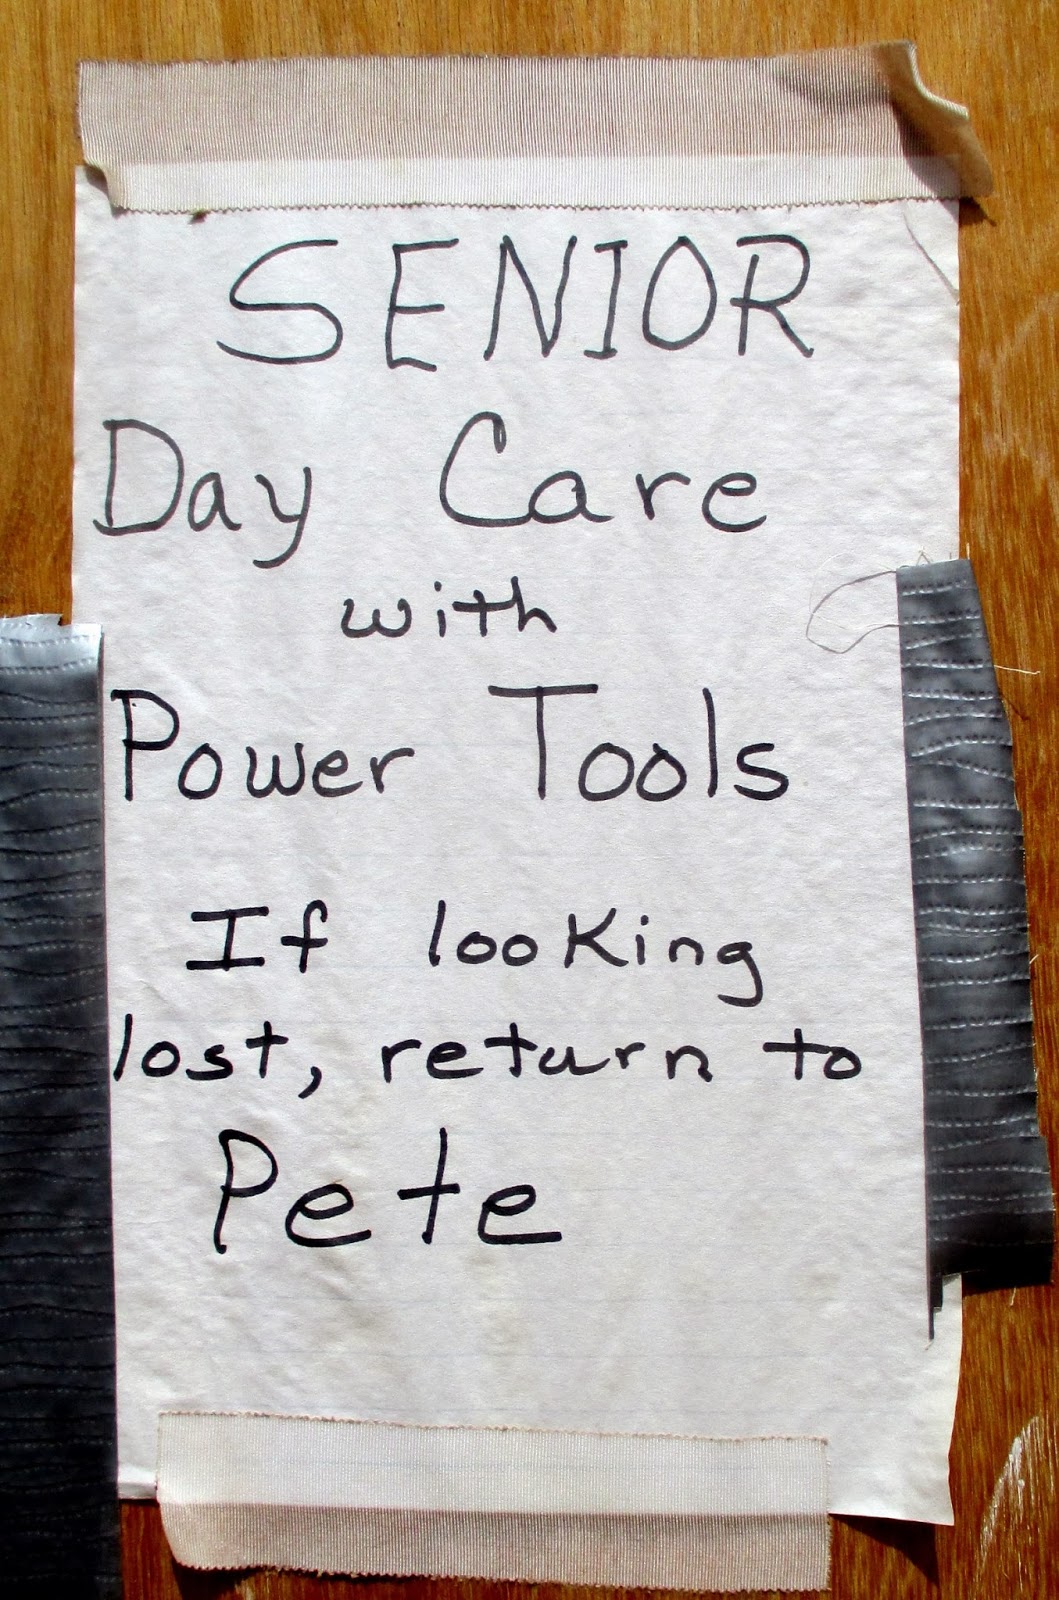 SENIOR
Day Care
with
Power Tools
If looking
lost, return to
Pete